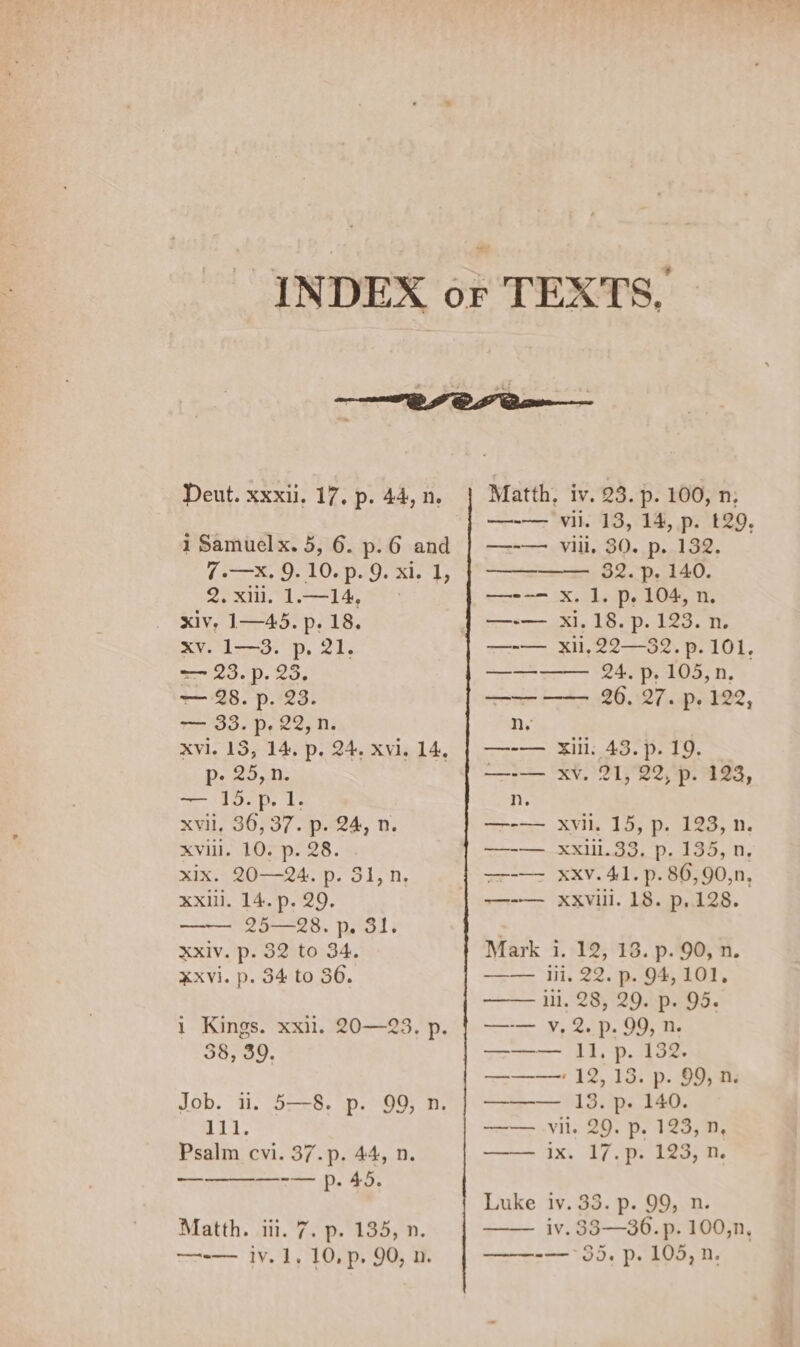 INDEX OF TEXTS.
Deut. xxxii. 17. p. 44, n.
i Samuel x. 5, 6. p. 6 and
7.—x. 9. 10. p. 9. xi. 1,
2. xiii. 1.—14,
xiv. 1—45. p. 18.
xv. 1—3. p. 21.
— 23. p. 23.
— 28. p. 23.
— 33. p. 22, n.
xvi. 13, 14. p. 24. xvi. 14.
p. 25, n.
— 15. p. 1.
xvii. 36, 37. p. 24, n.
xviii. 10. p. 28.
xix. 20—24. p. 31, n.
xxiii. 14. p. 29.
—— 25—28. p. 31.
xxiv. p. 32 to 34.
xxvi. p. 34 to 36.
i Kings. xxii. 20—23. p.
38, 39.
Job. ii. 5—8. p. 99, n.
111.
Psalm cvi. 37. p. 44, n.
—————— p. 45.
Matth. iii. 7. p. 135, n.
—-— iv. 1. 10, p. 90, n.
Matth. iv. 23. p. 100, n.
—-— vii. 13, 14, p. 129.
—-— viii. 30. p. 132.
———— 32. p. 140.
—-— x. 1. p. 104, n.
—-— xi. 18. p. 123. n.
—-— xii. 22—32. p. 101.
———— 24. p. 105, n.
———— 26. 27. p. 122,
n.
—-— xiii. 43. p. 19.
—-— xv. 21, 22, p. 123,
n.
—-— xvii. 15, p. 123, n.
—-— xxiii. 33. p. 135, n.
—-— xxv. 41. p. 86, 90, n.
—-— xxviii. 18. p. 128.
Mark i. 12, 13. p. 90, n.
—— iii. 22. p. 94, 101.
—— iii. 28, 29. p. 95.
—-— v. 2. p. 99, n.
——— 11, p. 132.
——— 12, 13. p. 99, n.
——— 13. p. 140.
—— vii. 29. p. 123, n.
—— ix. 17. p. 123, n.
Luke iv. 33. p. 99, n.
—— iv. 33—36. p. 100, n.
——-— 35. p. 105, n.